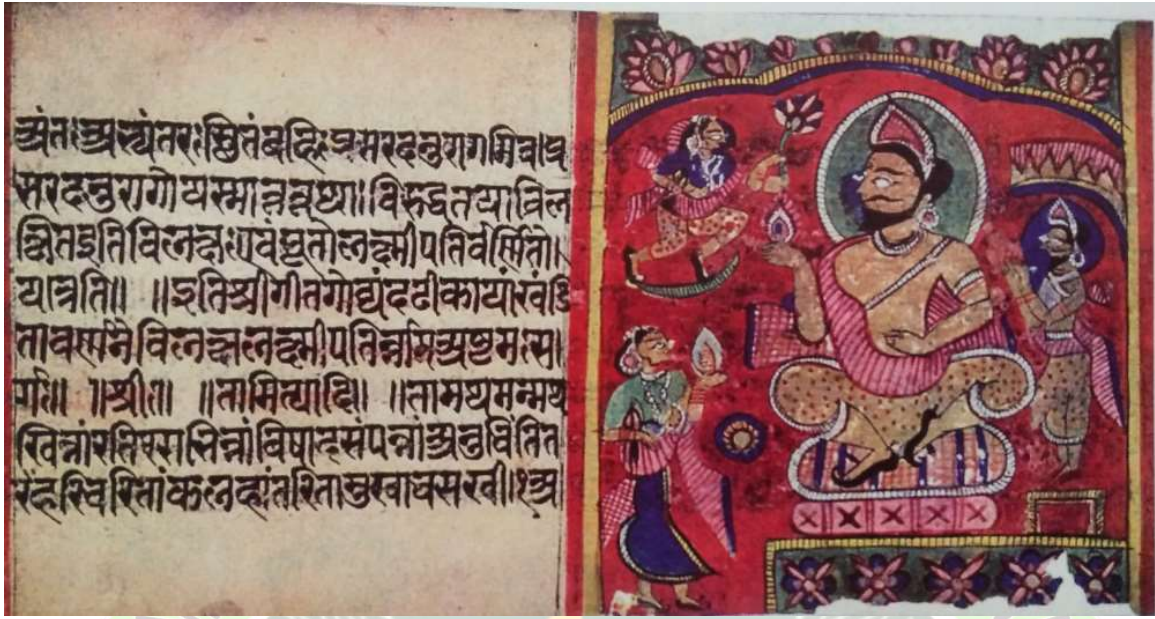 अंतःअभ्यंतरःस्थितंबहिःप्रसरदनुरागमिवाप्र
सरदनुरागोयस्मान्नवृष्ट्या॥विरुद्धतयाविल
क्षितइतिविलक्षःएवंभूतोलक्ष्मीपतिर्वर्णितो।
यत्रेति॥ ॥इतिश्रीगीतगोव्यंदटीकायांखंडि
तावर्णनेविलक्षलक्ष्मीपतिर्नामअष्टमःस।
र्गः॥ ॥श्रीः॥ ॥तामित्यादि॥ ॥तामथमन्मथ
खिन्नांरतिपराभिन्नांविषादसंपन्नांअनुचिंतित
हरिचरितांकलहांतरितामुवाचसखी।१अ